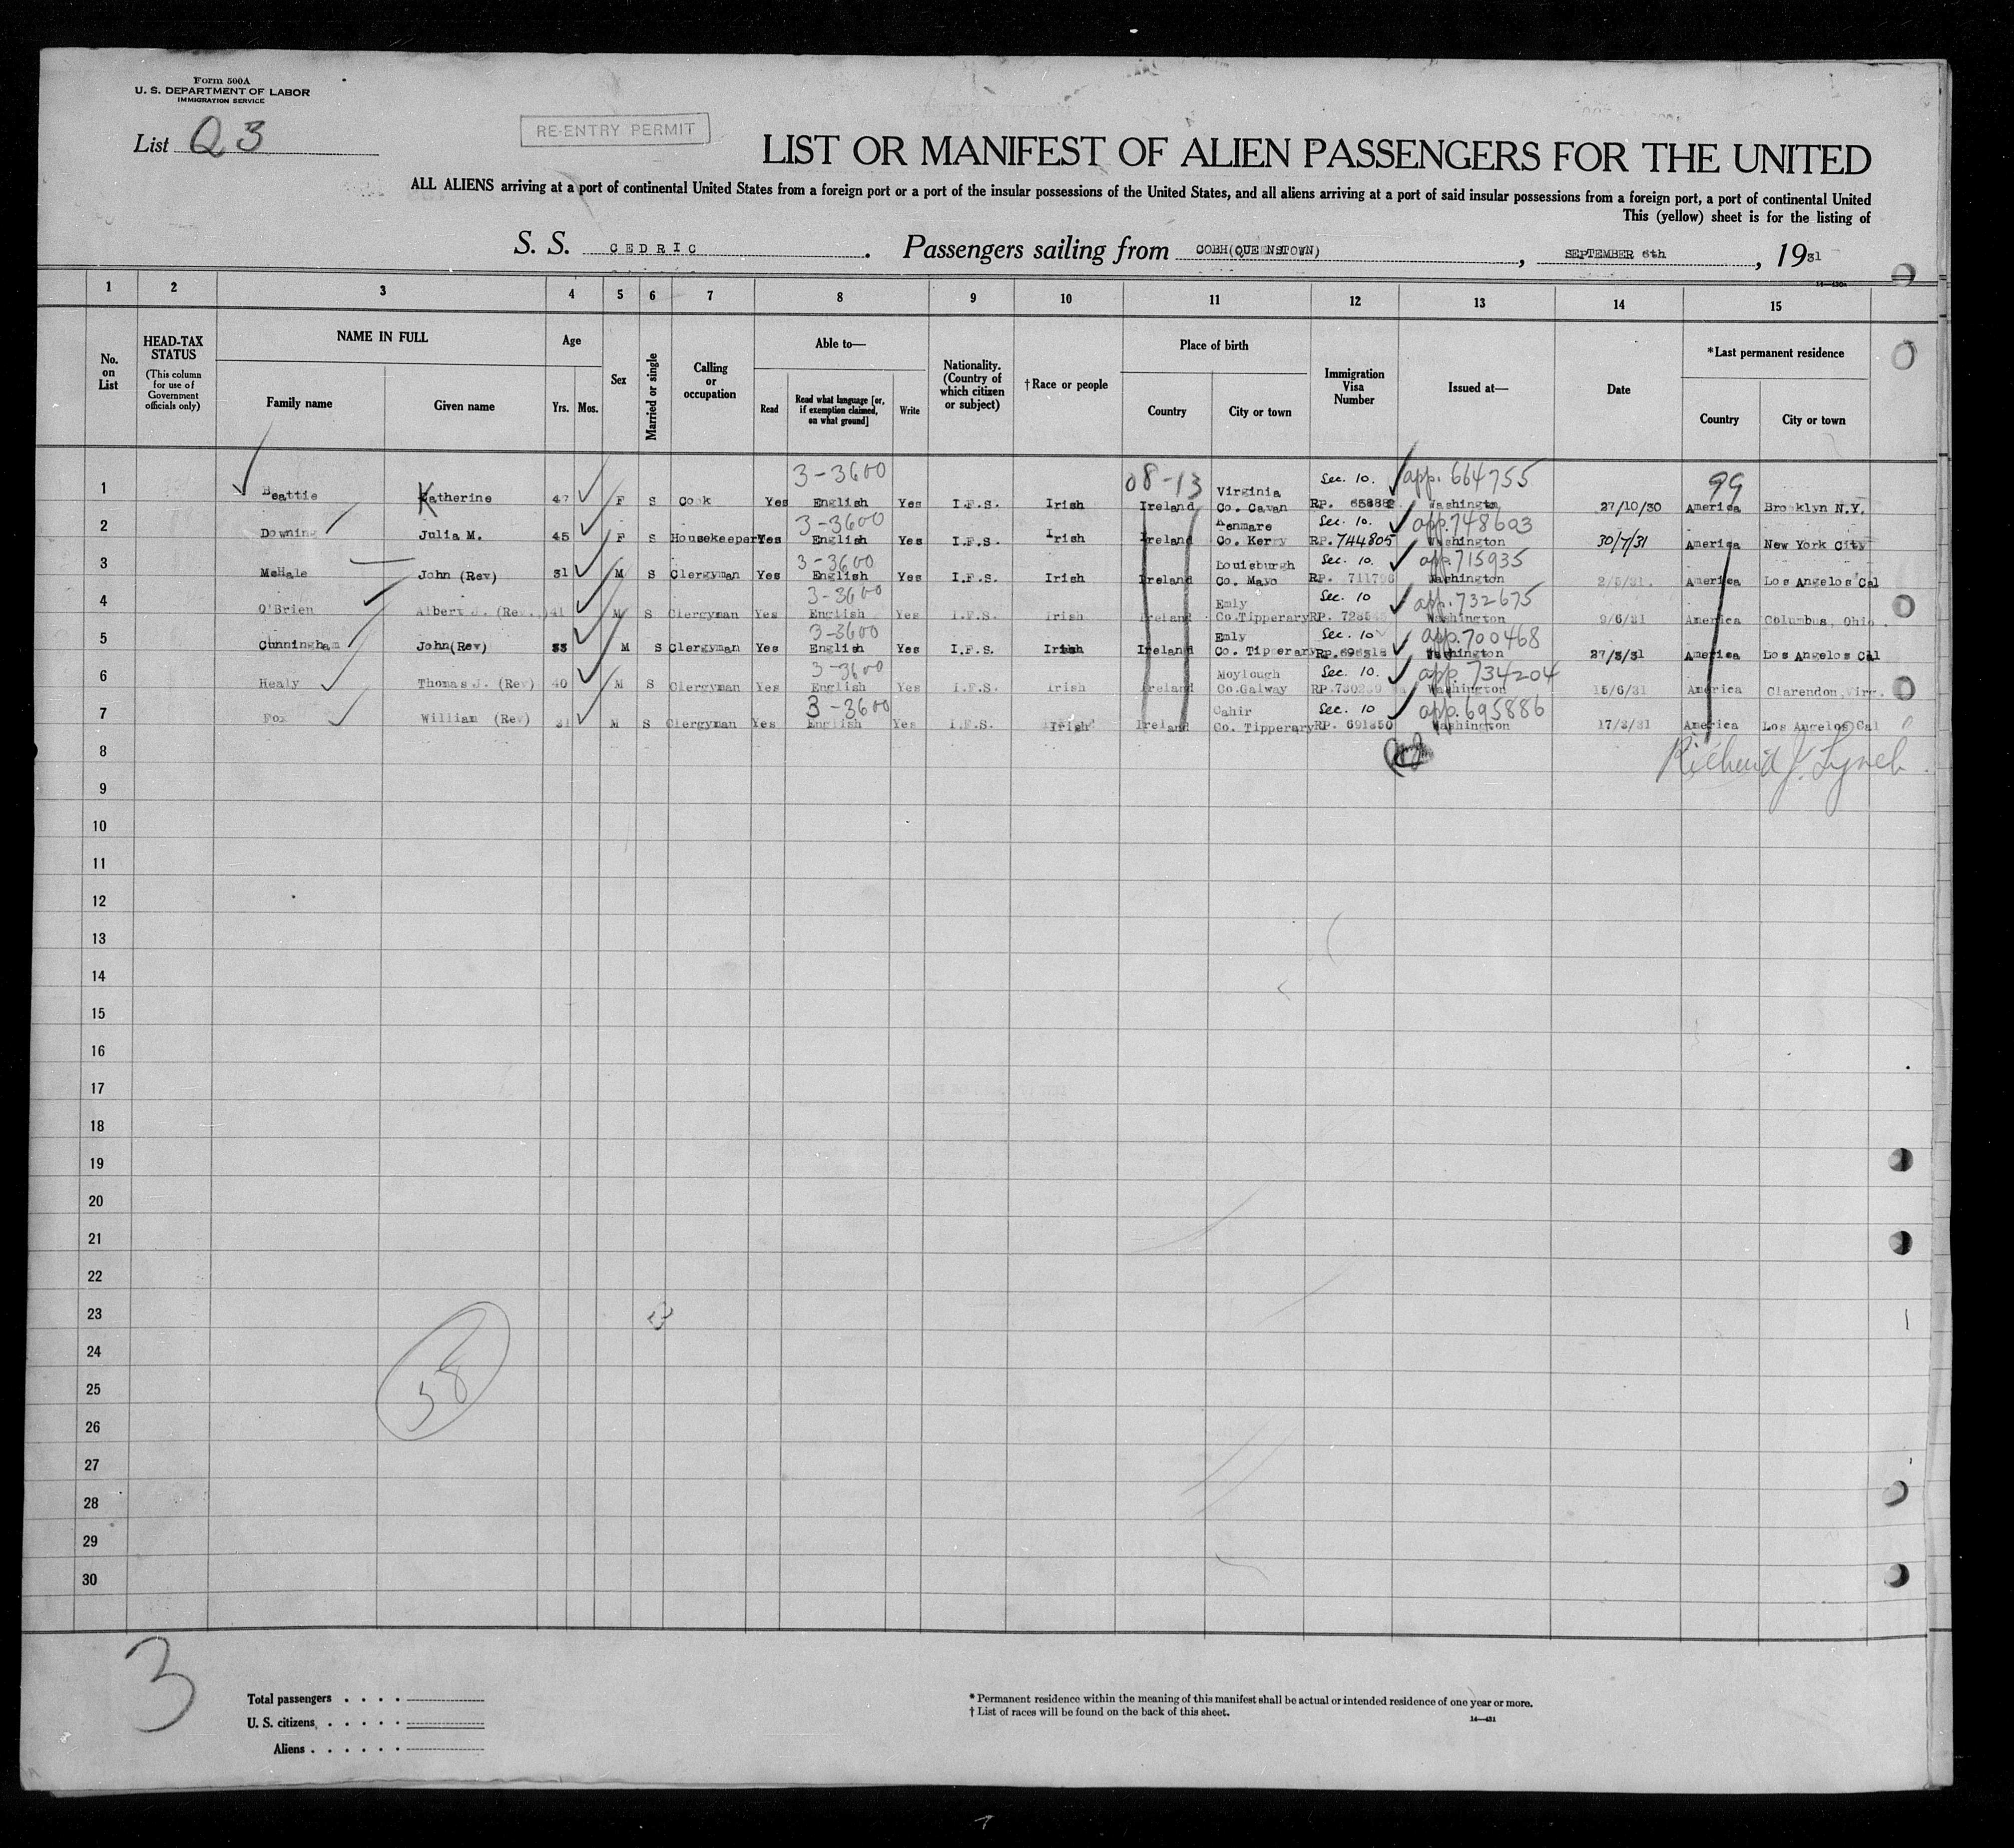 Form 500A
U. S. DEPARTMENT OF LABOR
IMMIGRATION SERVICE
List Q3
RE-ENTRY PERMIT
LIST OR MANIFEST OF ALIEN PASSENGERS FOR THE UNITED
ALL ALIENS arriving at a port of continental United States from a foreign port or a port of the insular possessions of the United States, and all aliens arriving at a port of said insular possessions from a foreign port, a port of continental United
This (yellow) sheet is for the listing of
S. S. CEDRIC. Passengers sailing from COBH(QUEENSTOWN), SEPTEMBER 6th, 1931
1 2 3 4 5 6 7 8 9 10 11 12 13 14 15
No. on List
HEAD-TAX STATUS
(This column for use of Government officials only)
NAME IN FULL
Family name Given name
Age
Yrs. Mos.
Sex
Married or single
Calling or occupation
Able to—
Read
Read what language [or, if exemption claimed, on what ground]
Write
Nationality. (Country of which citizen or subject)
†Race or people
Place of birth
Country City or town
Immigration Visa Number
Issued at—
Date
*Last permanent residence
Country City or town
3-3600 08-13 Virginia Sec. 10. app. 664755 99
1 Beattie Katherine 47 F S Cook Yes English Yes I.F.S. Irish Ireland Co. Cavan RP. Washington 27/10/30 America Brooklyn N.Y.
3-3600 Kenmare Sec. 10. app. 748603
2 Downing Julia M. 45 F S Housekeeper Yes English Yes I.F.S. Irish Ireland Co. Kerry RP. 744805 Washington 30/7/31 America New York City
3-3600 Louisburgh Sec. 10. app. 715935
3 McHale John (Rev) 31 M S Clergyman Yes English Yes I.F.S. Irish Ireland Co. Mayo RP. 711796 Washington 2/5/31. America Los Angelos Cal
3-3600 Emly Sec. 10 app. 732675
4 O'Brien Albert J. (Rev.) 41 M S Clergyman Yes English Yes I.F.S. Irish Ireland Co.Tipperary RP. Washington 9/6/31 America Columbus, Ohio.
3-3600 Emly Sec. 10 app. 700468
5 Cunningham John(Rev) 33 M S Clergyman Yes English Yes I.F.S. Irish Ireland Co. Tipperary RP. Washington 27/3/31 America Los Angelos Cal
3-3600 Moylough Sec. 10. app. 734204
6 Healy Thomas J. (Rev) 40 M S Clergyman Yes English Yes I.F.S. Irish Ireland Co.Galway RP. Washington 15/6/31 America Clarendon, Virg.
3-3600 Cahir Sec. 10 app. 695886
7 Fox William (Rev) 31 M S Clergyman Yes English Yes I.F.S. Irish Ireland Co. Tipperary RP. 691350 Washington 17/3/31 America Los Angelos Cal
8 Richard J. Lynch
9
10
11
12
13
14
15
16
17
18
19
20
21
22
23
24
25
26
27
28
29
30
58
3
Total passengers
U. S. citizens
Aliens
* Permanent residence within the meaning of this manifest shall be actual or intended residence of one year or more.
† List of races will be found on the back of this sheet.
14—431